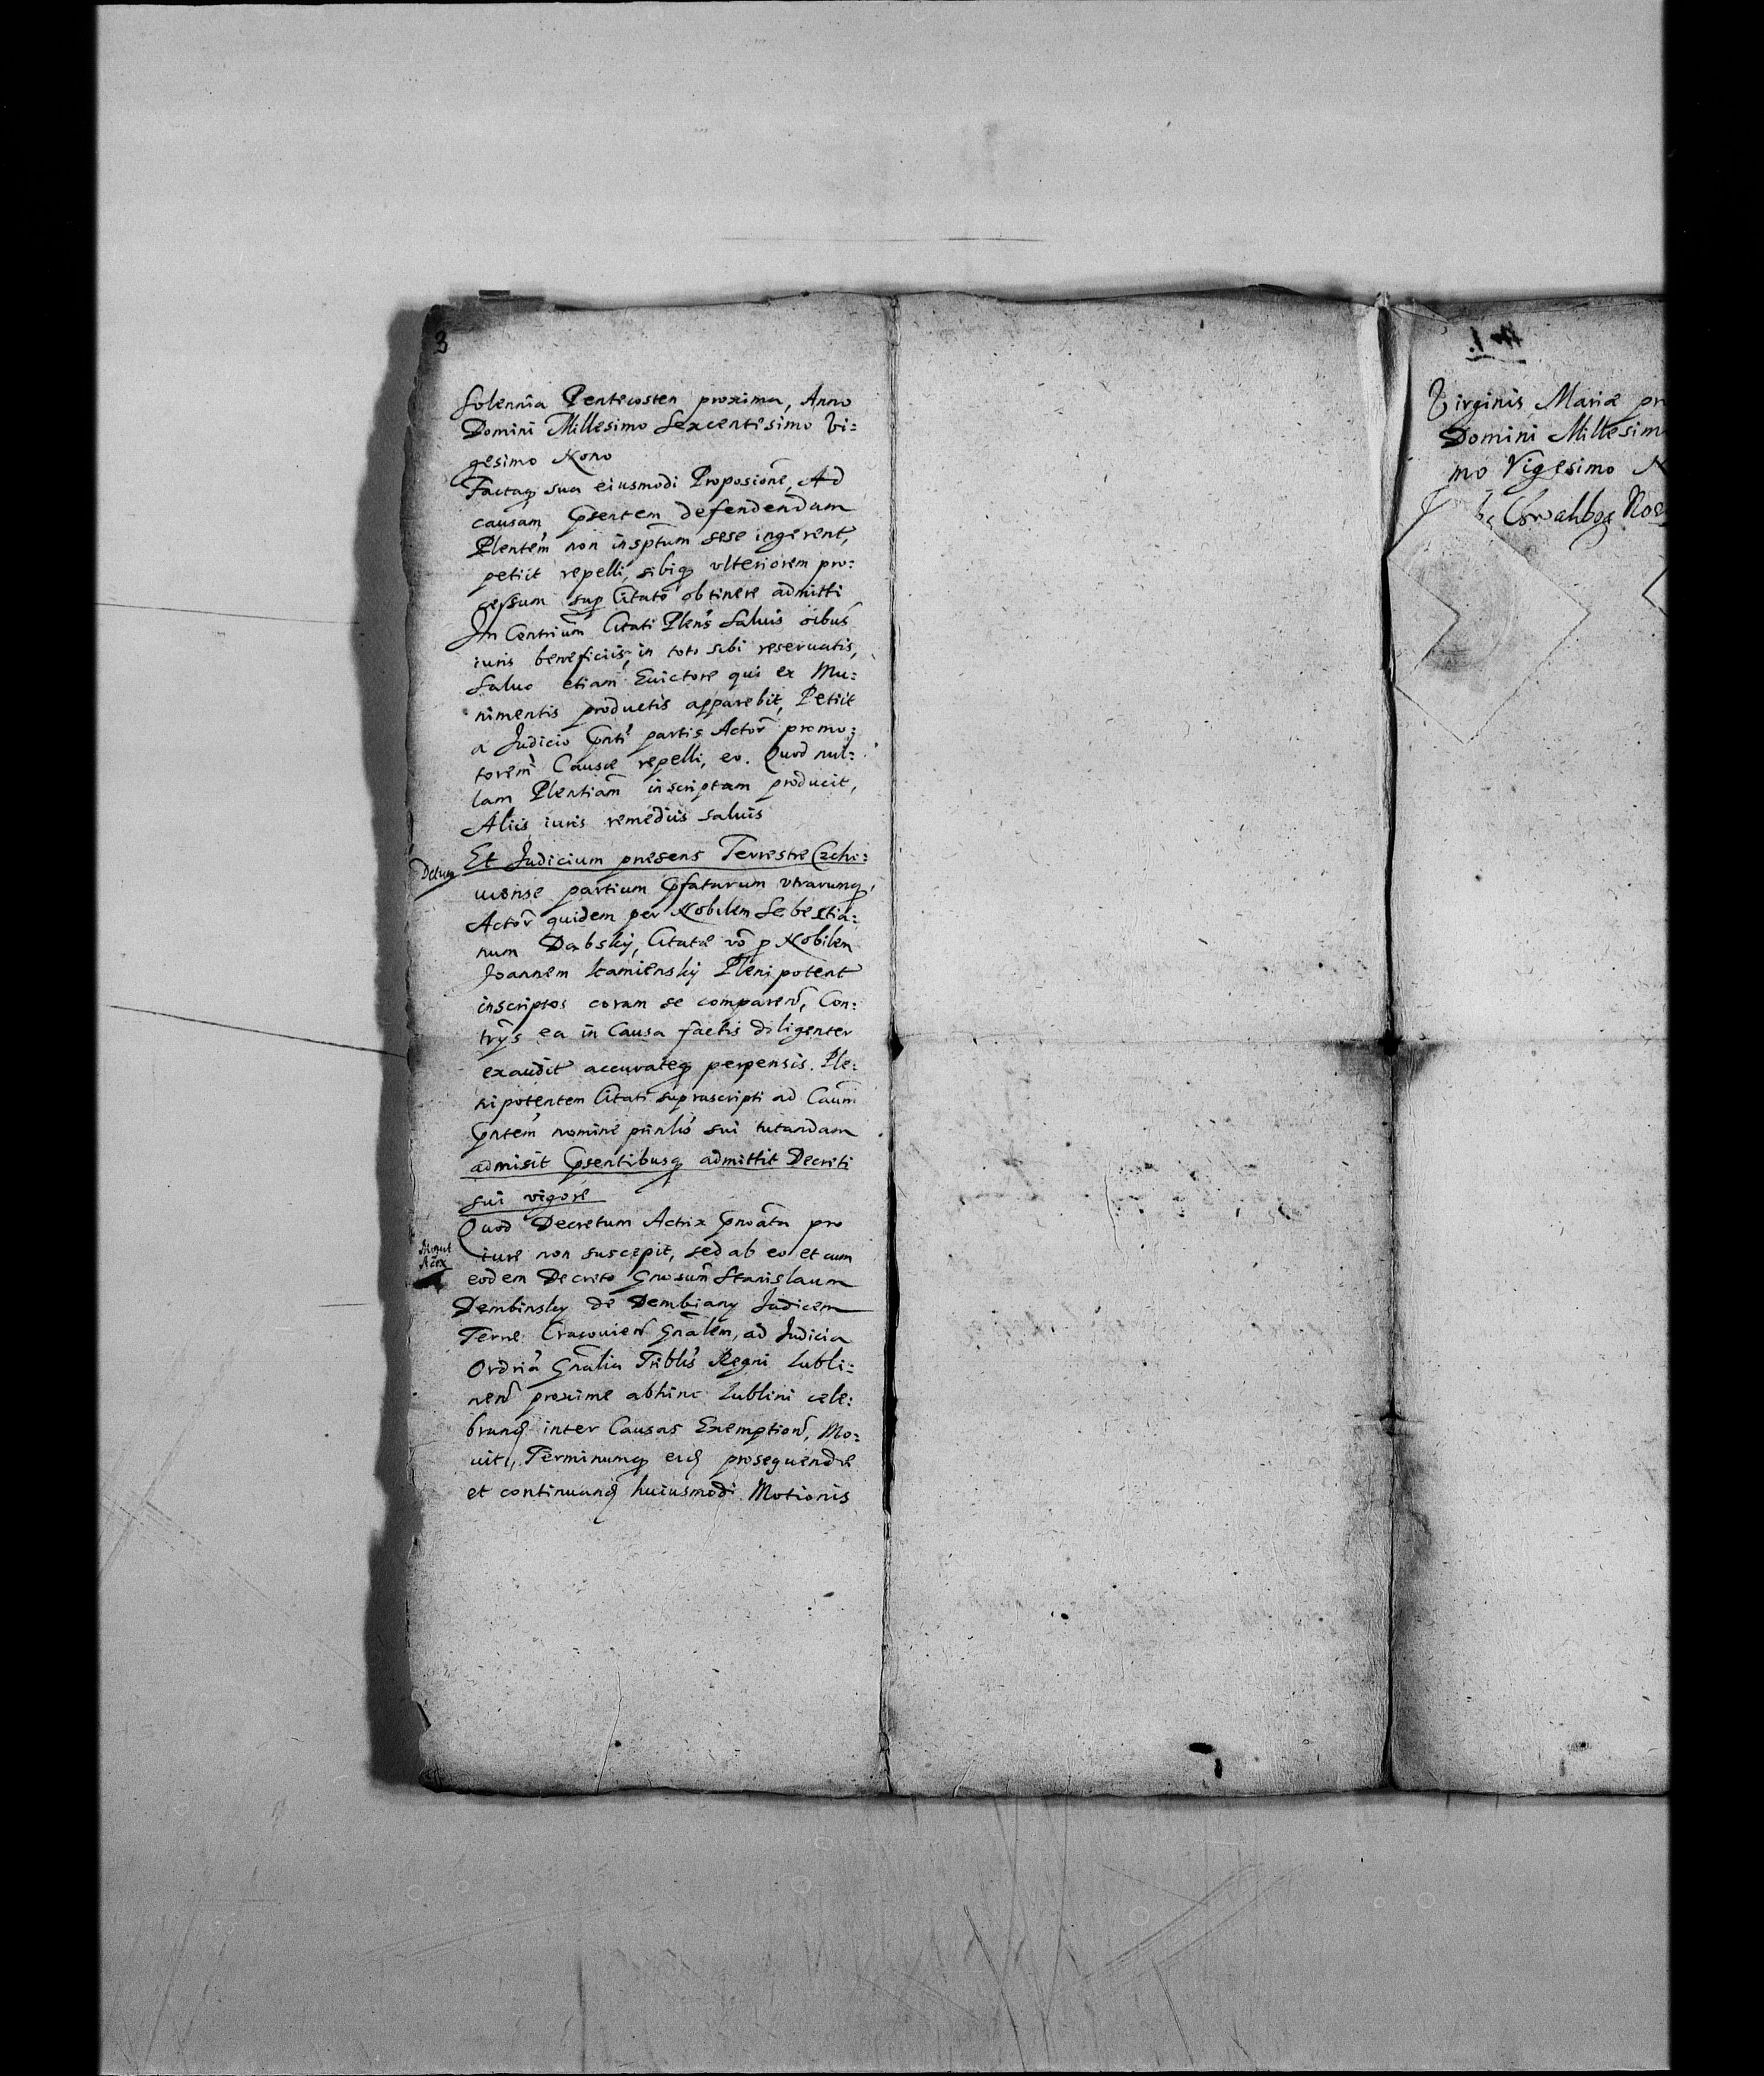 3
Solennia Pentecosten proxima, Anno
Domini Millesimo Sexcentesimo Vi:
gesimo Nono
Factaq sua eiusmodi Proposione, Ad
causam psentem defendendam
Plentem non insptum sese ingerent,
petiit repelli, sibiq vlteriorem pro:
cessum sup Citato obtinere admitti
In Contrium Citati Plens Saluis oibus
iuris beneficiis, in toto sibi reseruatis,
Saluo etiam Euictore qui ex Mu:
nimentis productis apparebit, Petiit
a Judicio pnti partis Actor promo:
torem Causæ repelli, eo. Quod nul:
lam Plentiam inscriptam producit,
Aliis iuris remediis saluis
Et Judicium presens Terrestre Czcho:
uiense partium pfatarum vtrarumq,
Actor quidem per Nobilem Sebestia:
num Dabsky, Citatæ vo p Nobilem
Joannem Kamiensky Plenipotent
inscriptos coram se comparen, Con:
trijs ea in Causa factis diligenter
exaudit accurateq perpensis. Ple:
nipotentem Citati suprascripti ad Caum
pntem nomine sui tutandam
admisit psentibusq admittit Decreti
sui vigore
Quod Decretum Actrix pnoata pro
iure non suscepit, sed ab eo et cum
eodem Decreto Gnosum Stanislaum
Dembinsky de Dembiany Judicem
Terre Cracouien Gnalem, ad Judicia
Ordria Gnalia Triblis Regni Lubli:
nen proxime abhinc Lublini cele:
brand inter Causas Exemption, Mo:
uit, Terminumq eid prosequendæ
et continuand huiusmodi Motionis
Virginis Mariæ pr
Domini Millesim
mo Vigesimo N